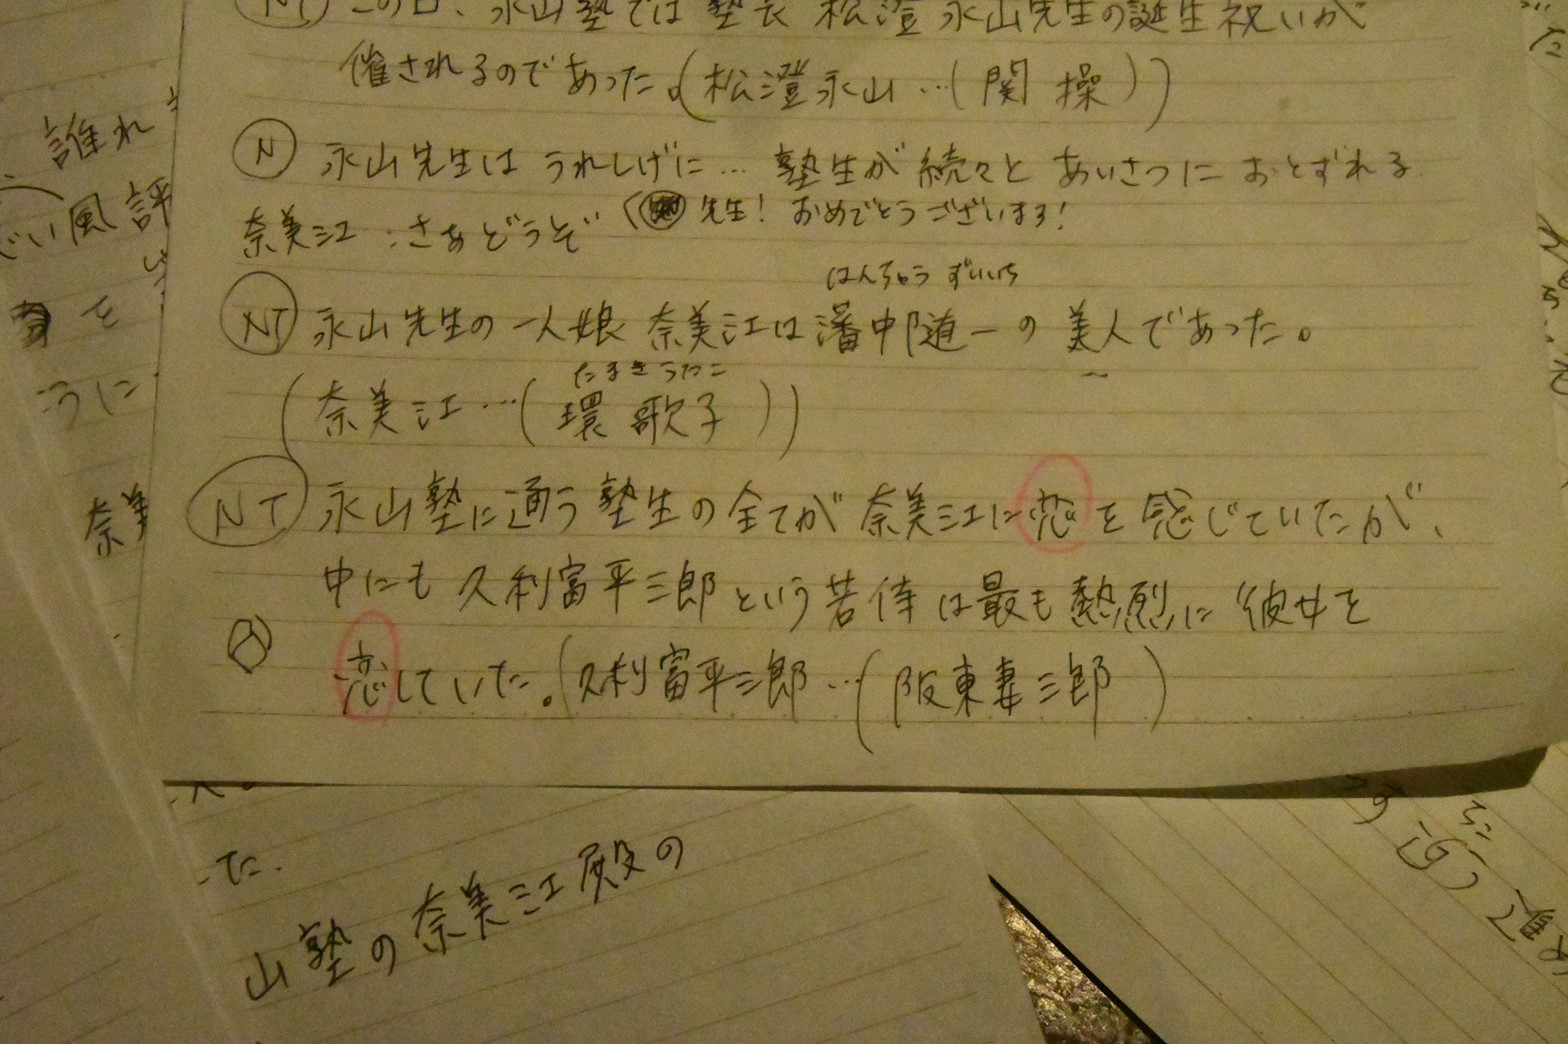 NT この日、永山塾では 塾長 松澄永山先生の誕生祝いが
催されるのであった。(松澄永山…(関 操))
N 永山先生は うれしげに… 塾生が 続々と あいさつに おとずれる
奈美江:さあどうぞ 先生! おめでとうございます!
はんちゅう ずいいち
NT 永山先生の 一人娘 奈美江は 藩中随一の 美人であった。
たまき うたこ
(奈美江…(環 歌子))
NT 永山塾に通う塾生の全てが 奈美江に恋を感じていたが、
中にも 久利富平三郎という若侍は最も熱烈に 彼女を
恋していた。(久利富平三郎…(阪東妻三郎)
誰れ
い風評
を
うに
奈美
た.
山塾の奈美江殿の